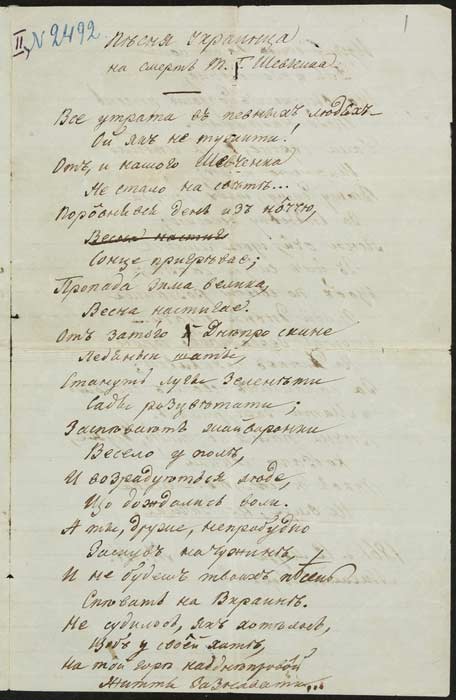 II, N 2492.
1
Пѣсня Украинца
на смерть Т. Г. Шевченка
Все утрата въ певныхъ людѣхъ
Ой якъ не тужити!
Отъ, и нашого Шевченка
Не стало на свѣтѣ...
Порôвнявся день изъ нôччю,
Весна настига
Сонце пригрѣвае;
Пропада зима велика,
Весна настигае.
Отъ затого й Днѣпро скине
Ледяныи шаты,
Стануть лугы зеленѣти
Сады розцвѣтати;
Заспѣвають жайворонки
Весело у полѣ,
И возрадуються люде,
Що дождались воли.
А ты, друже, непробудно
Заснувъ на чужинѣ,
И не будешь твоихъ пѣсень
Спѣвать на Вкраинѣ.
Не судилось, якъ хотѣлось,
Щобъ у своѣй хатѣ,
На тôй горѣ наддпѣпровôй
Життя дазнавати...